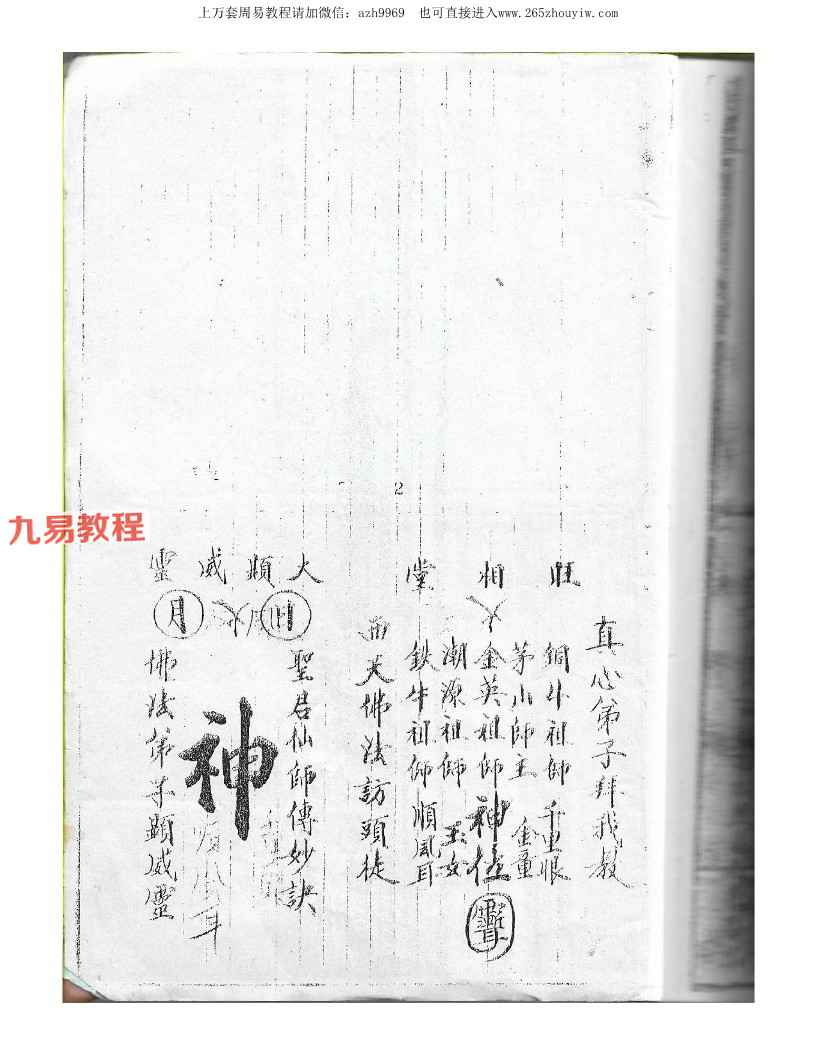 上万套周易教程请加微信：azh9969　也可直接进入www.265zhouyiw.com
九易教程
2
旺相堂
真心弟子拜我教
銅牛祖師 千里眼
茅山師主 金童
金英祖師 神位
潮源祖師 玉女
鉄牛祖師 順風耳
西天佛法訪頭徒
大顯威靈
日
火
月
聖君仙師傳妙訣
神
千里眼
順風耳
佛法弟子顯威靈